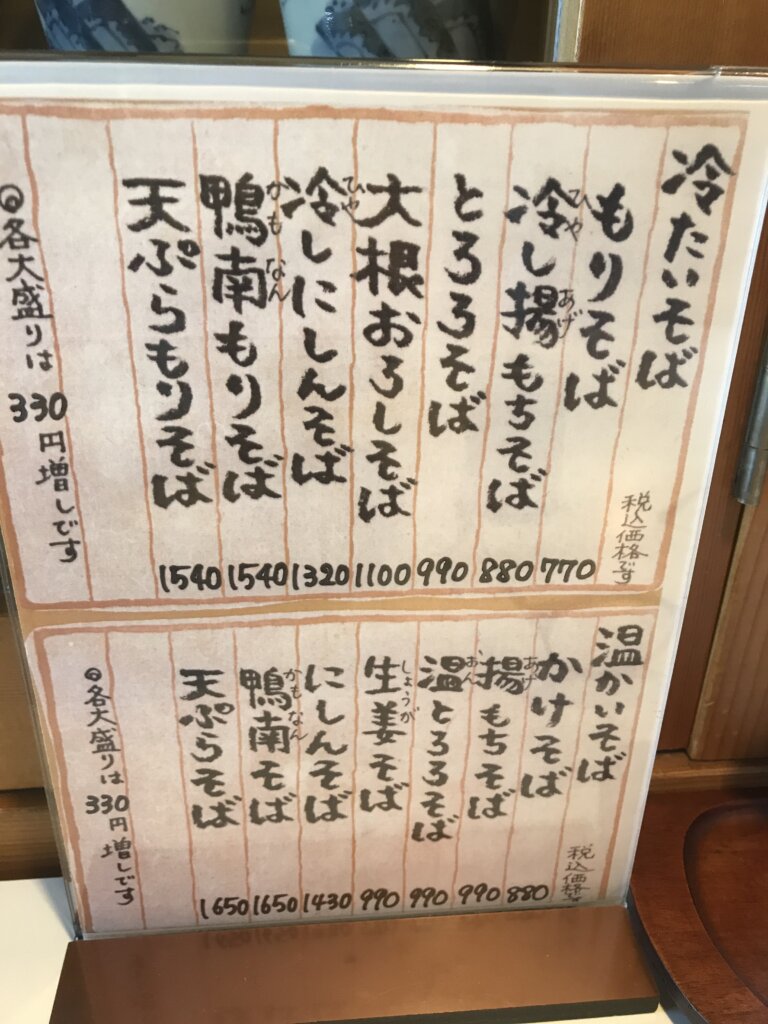 冷たいそば
税込価格です
もりそば 770
冷し揚もちそば 880
ひや あげ
とろろそば 990
大根おろしそば 1100
冷しにしんそば 1320
ひや
鴨南もりそば 1540
かも なん
天ぷらもりそば 1540
◎各大盛りは330円増しです
温かいそば
税込価格です
かけそば 880
揚もちそば 990
あげ
温とろろそば 990
おん
生姜そば 990
しょうが
にしんそば 1430
鴨南そば 1650
かも なん
天ぷらそば 1650
◎各大盛りは330円増しです